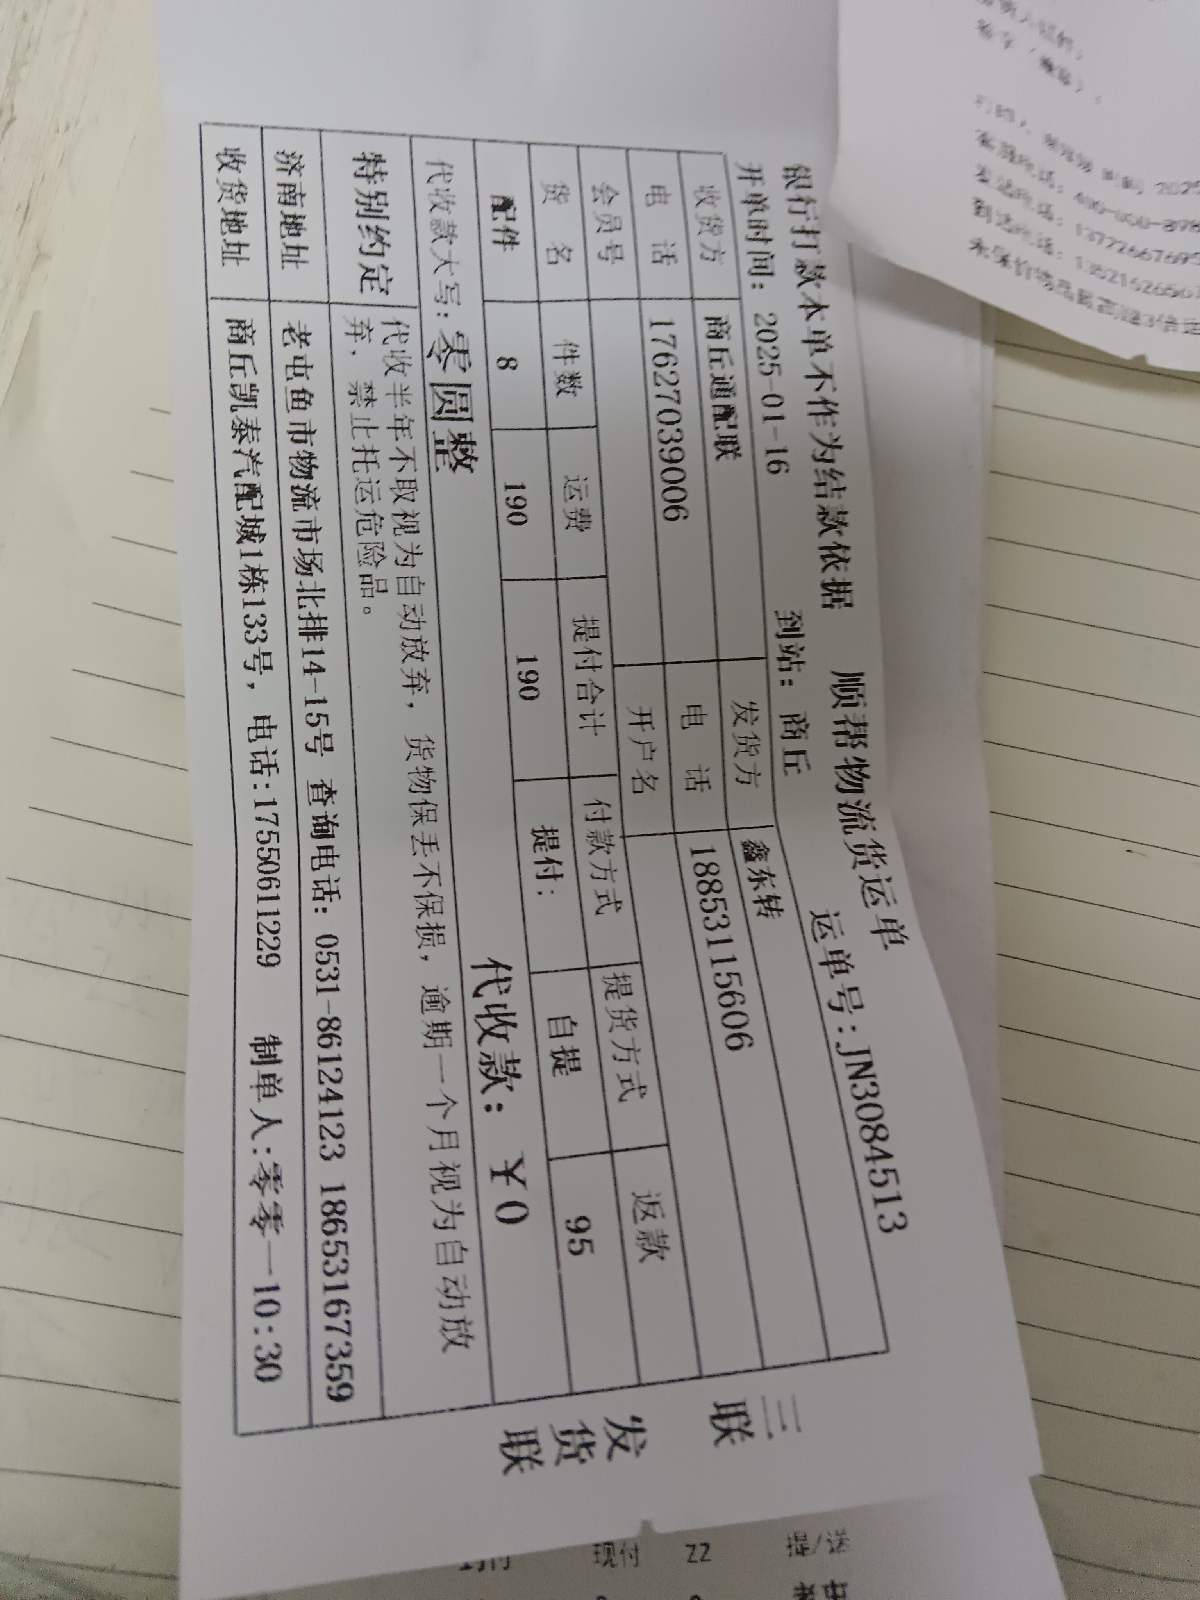 顺帮物流货运单
银行打款本单不作为结款依据
运单号:JN3084513
开单时间: 2025-01-16 到站: 商丘
收货方 商丘通配联 发货方 鑫东转
电 话 17627039006 电 话 18853115606
会员号 开户名
货 名 件数 运费 提付合计 付款方式 提货方式 返款
配件 8 190 190 提付: 自提 95
代收款大写: 零圆整 代收款: ￥0
特别约定 代收半年不取视为自动放弃, 货物保丢不保损, 逾期一个月视为自动放
弃, 禁止托运危险品。
济南地址 老屯鱼市物流市场北排14-15号 查询电话: 0531-86124123 18653167359
收货地址 商丘凯泰汽配城1栋133号, 电话:17550611229 制单人:零零一10:30
三联
发货联
2025
发站电话: 1372266769
到达电话:
未保价物品最高赔3倍运
现付 22 提/送